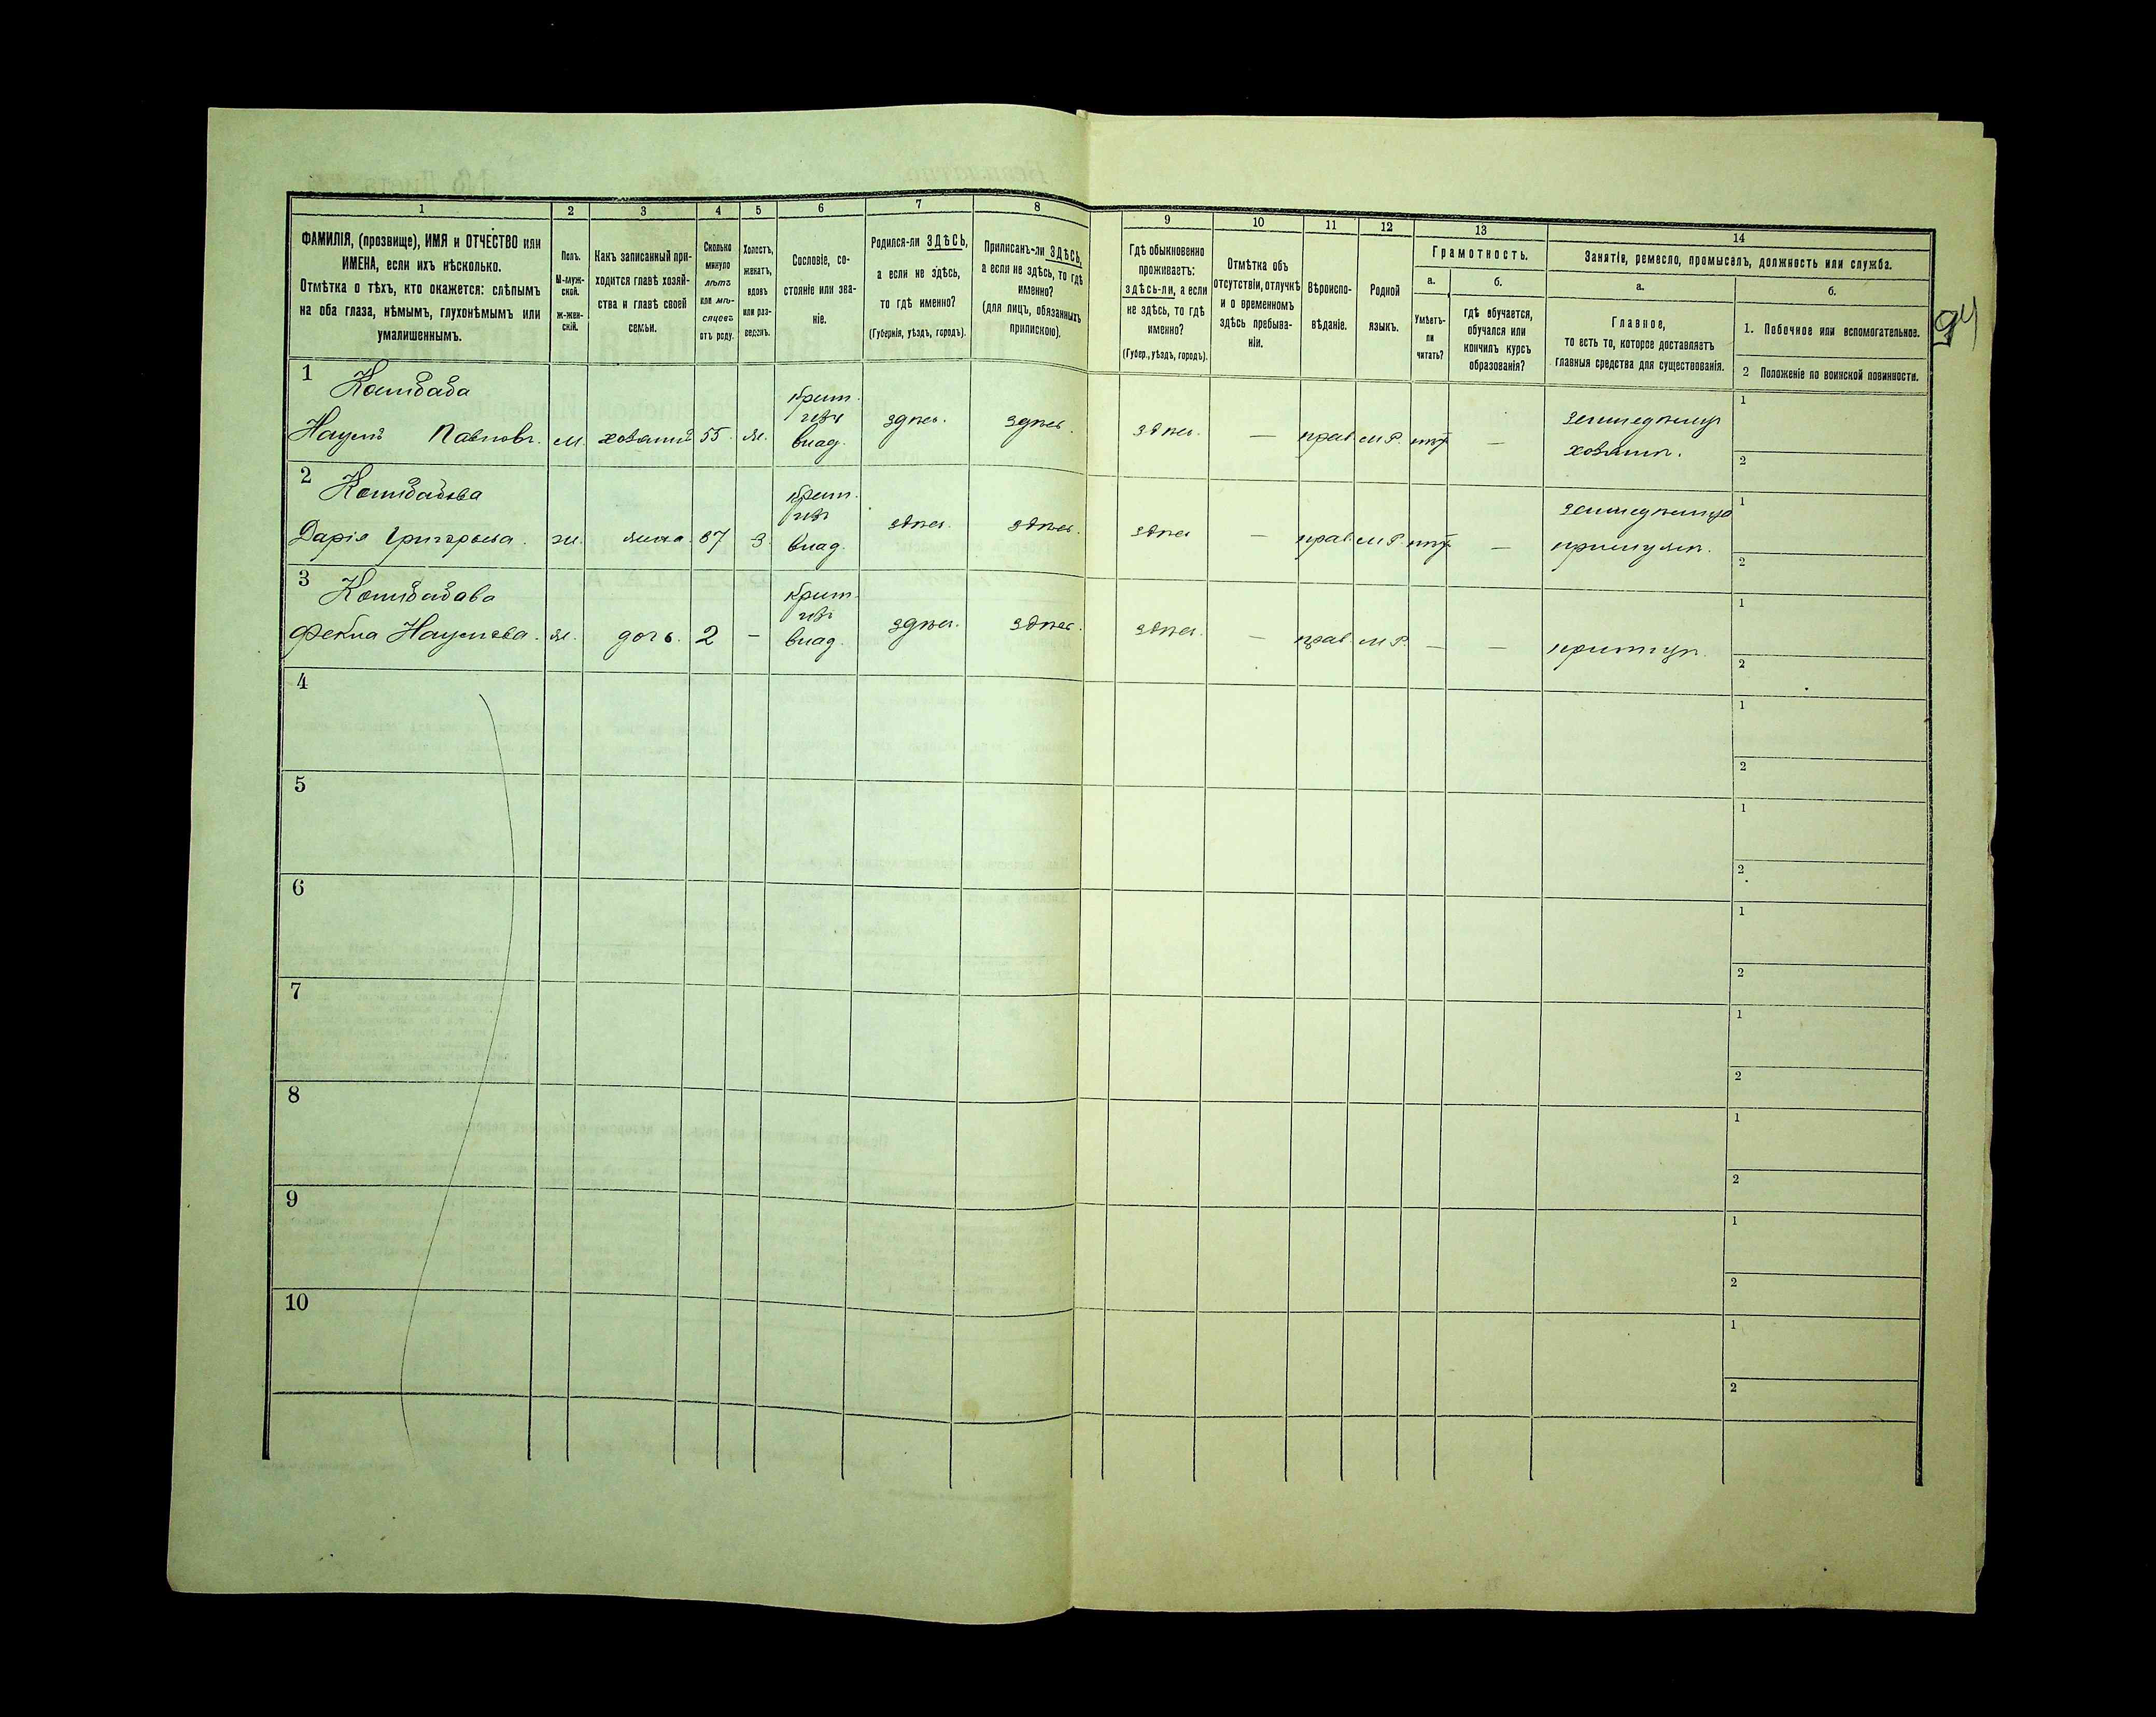 1
2
3
4
5
6
7
8
9
10
11
12
13
14
ФАМИЛІЯ, (прозвище), ИМЯ и ОТЧЕСТВО или
ИМЕНА, если ихъ нѣсколько.
Отмѣтка о тѣхъ, кто окажется: слѣпымъ
на оба глаза, нѣмымъ, глухонѣмымъ или
умалишеннымъ.
Полъ.
М-муж-
ской.
ж-жен-
скій.
Какъ записанный при-
ходится главѣ хозяй-
ства и главѣ своей
семьи.
Сколько
минуло
лѣтъ
или мѣ-
сяцевъ
отъ роду.
Холостъ,
женатъ,
вдовъ
или раз-
веденъ.
Сословіе, со-
стояніе или зва-
ніе.
Родился-ли ЗДѢСЬ,
а если не здѣсь,
то гдѣ именно?
(Губернія, уѣздъ, городъ).
Приписанъ-ли ЗДѢСЬ,
а если не здѣсь, то гдѣ
именно?
(для лицъ, обязанныхъ
припискою).
Гдѣ обыкновенно
проживаетъ:
здѣсь-ли, а если
не здѣсь, то гдѣ
именно?
(Губер., уѣздъ, городъ).
Отмѣтка объ
отсутствіи, отлучкѣ
и о временномъ
здѣсь пребыва-
ніи.
Вѣроиспо-
вѣданіе.
Родной
языкъ.
Грамотность.
а.
Умѣетъ-
ли
читать?
б.
гдѣ обучается,
обучался или
кончилъ курсъ
образованія?
Занятіе, ремесло, промыселъ, должность или служба.
а.
Главное,
то есть то, которое доставляетъ
главныя средства для существованія.
б.
1. Побочное или вспомогательное.
2 Положеніе по воинской повинности.
94
1
Наумъ Павловъ. м. 55. здѣсь. здѣсь. здѣсь. — прав. м.Р. —
1
2
2
Дарія Григорьева. жена здѣсь. здѣсь. здѣсь — прав. м.Р. —
1
2
3
Фекла Наумова. дочь. 2 — здѣсь. здѣсь. здѣсь. — прав. м.Р. — —
1
2
4
1
2
5
1
2
6
1
2
7
1
2
8
1
2
9
1
2
10
1
2